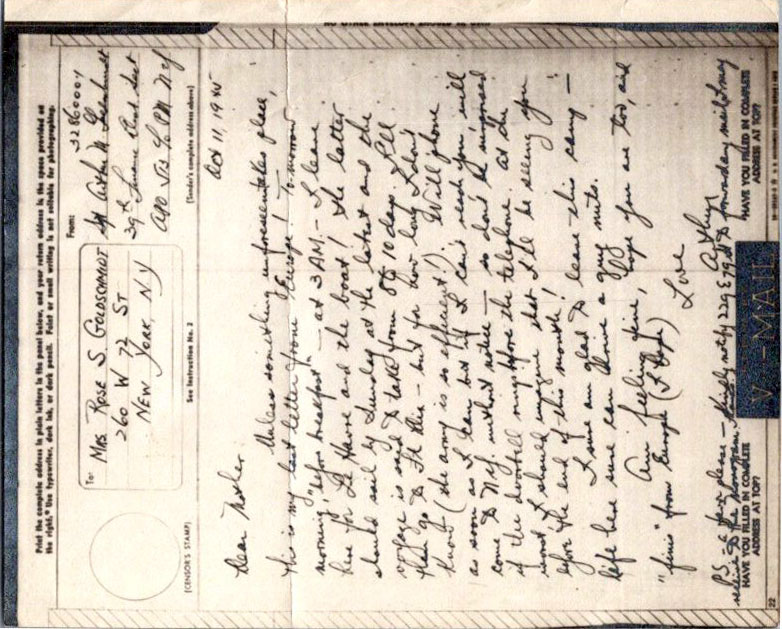 Print the complete address in plain letters in the panel below, and your return address in the space provided on
the right. Use typewriter, dark ink, or dark pencil. Faint or small writing is not suitable for photographing.
To:
MRS ROSE S. GOLDSCHMIDT
260 W 72 ST
NEW YORK, N Y
From:
32860004
Arthur
39th
APO 513 % PM NY
(CENSOR'S STAMP)
See Instruction No. 2
(Sender's complete address above)
Oct 11, 1945
Dear Mother
Unless something unforeseen takes place,
this is my last letter from Europe! To-morrow
morning, "before breakfast" — at 3 AM. — I leave
here for Le Havre and the boat! The latter
should sail by Sunday at the latest and the
voyage is said to take from 8 to 10 days. I'll
then go to Ft Dix — but for how long I don't
know (the army is so efficient!). Will phone
as soon as I can but if I can't reach you, will
come to N.Y. without notice — so don't be surprised
if the doorbell rings before the telephone. At the
worst I should imagine that I'll be seeing you
before the end of this month!
I sure am glad to leave this camp —
life here sure can drive a guy nuts.
Am feeling fine, hope you are too, and
"finis" from Europe (I hope)
Love
Arthur
P.S. a favor please — kindly notify 229 E 79 St to
HAVE YOU FILLED IN COMPLETE
ADDRESS AT TOP?
V · · · — MAIL
HAVE YOU FILLED IN COMPLETE
ADDRESS AT TOP?